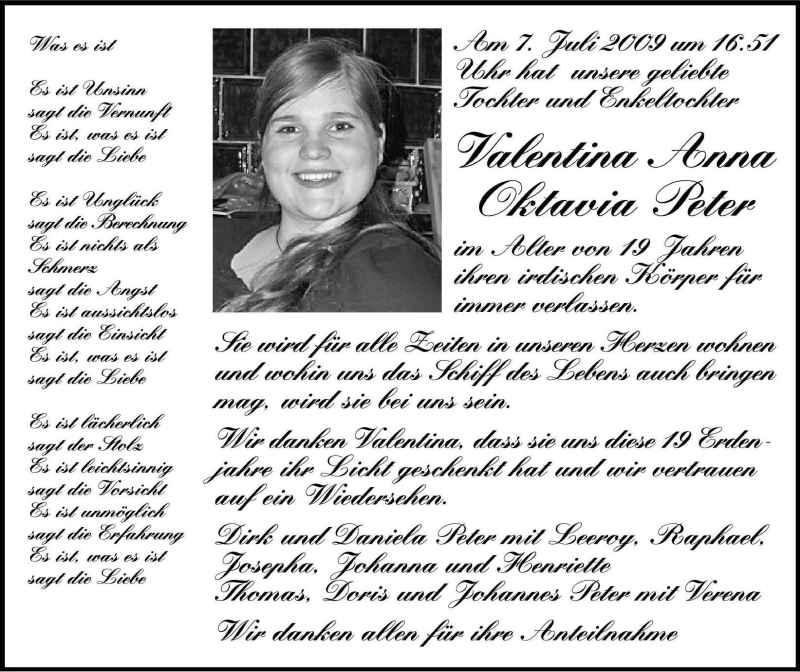 Was es ist
Es ist Unsinn
sagt die Vernunft
Es ist, was es ist
sagt die Liebe
Es ist Unglück
sagt die Berechnung
Es ist nichts als
Schmerz
sagt die Angst
Es ist aussichtslos
sagt die Einsicht
Es ist, was es ist
sagt die Liebe
Es ist lächerlich
sagt der Stolz
Es ist leichtsinnig
sagt die Vorsicht
Es ist unmöglich
sagt die Erfahrung
Es ist, was es ist
sagt die Liebe
Am 7. Juli 2009 um 16.51
Uhr hat unsere geliebte
Tochter und Enkeltochter
Valentina Anna
Oktavia Peter
im Alter von 19 Jahren
ihren irdischen Körper für
immer verlassen.
Sie wird für alle Zeiten in unseren Herzen wohnen
und wohin uns das Schiff des Lebens auch bringen
mag, wird sie bei uns sein.
Wir danken Valentina, dass sie uns diese 19 Erden-
jahre ihr Licht geschenkt hat und wir vertrauen
auf ein Wiedersehen.
Dirk und Daniela Peter mit Leeroy, Raphael,
Josepha, Johanna und Henriette
Thomas, Doris und Johannes Peter mit Verena
Wir danken allen für ihre Anteilnahme